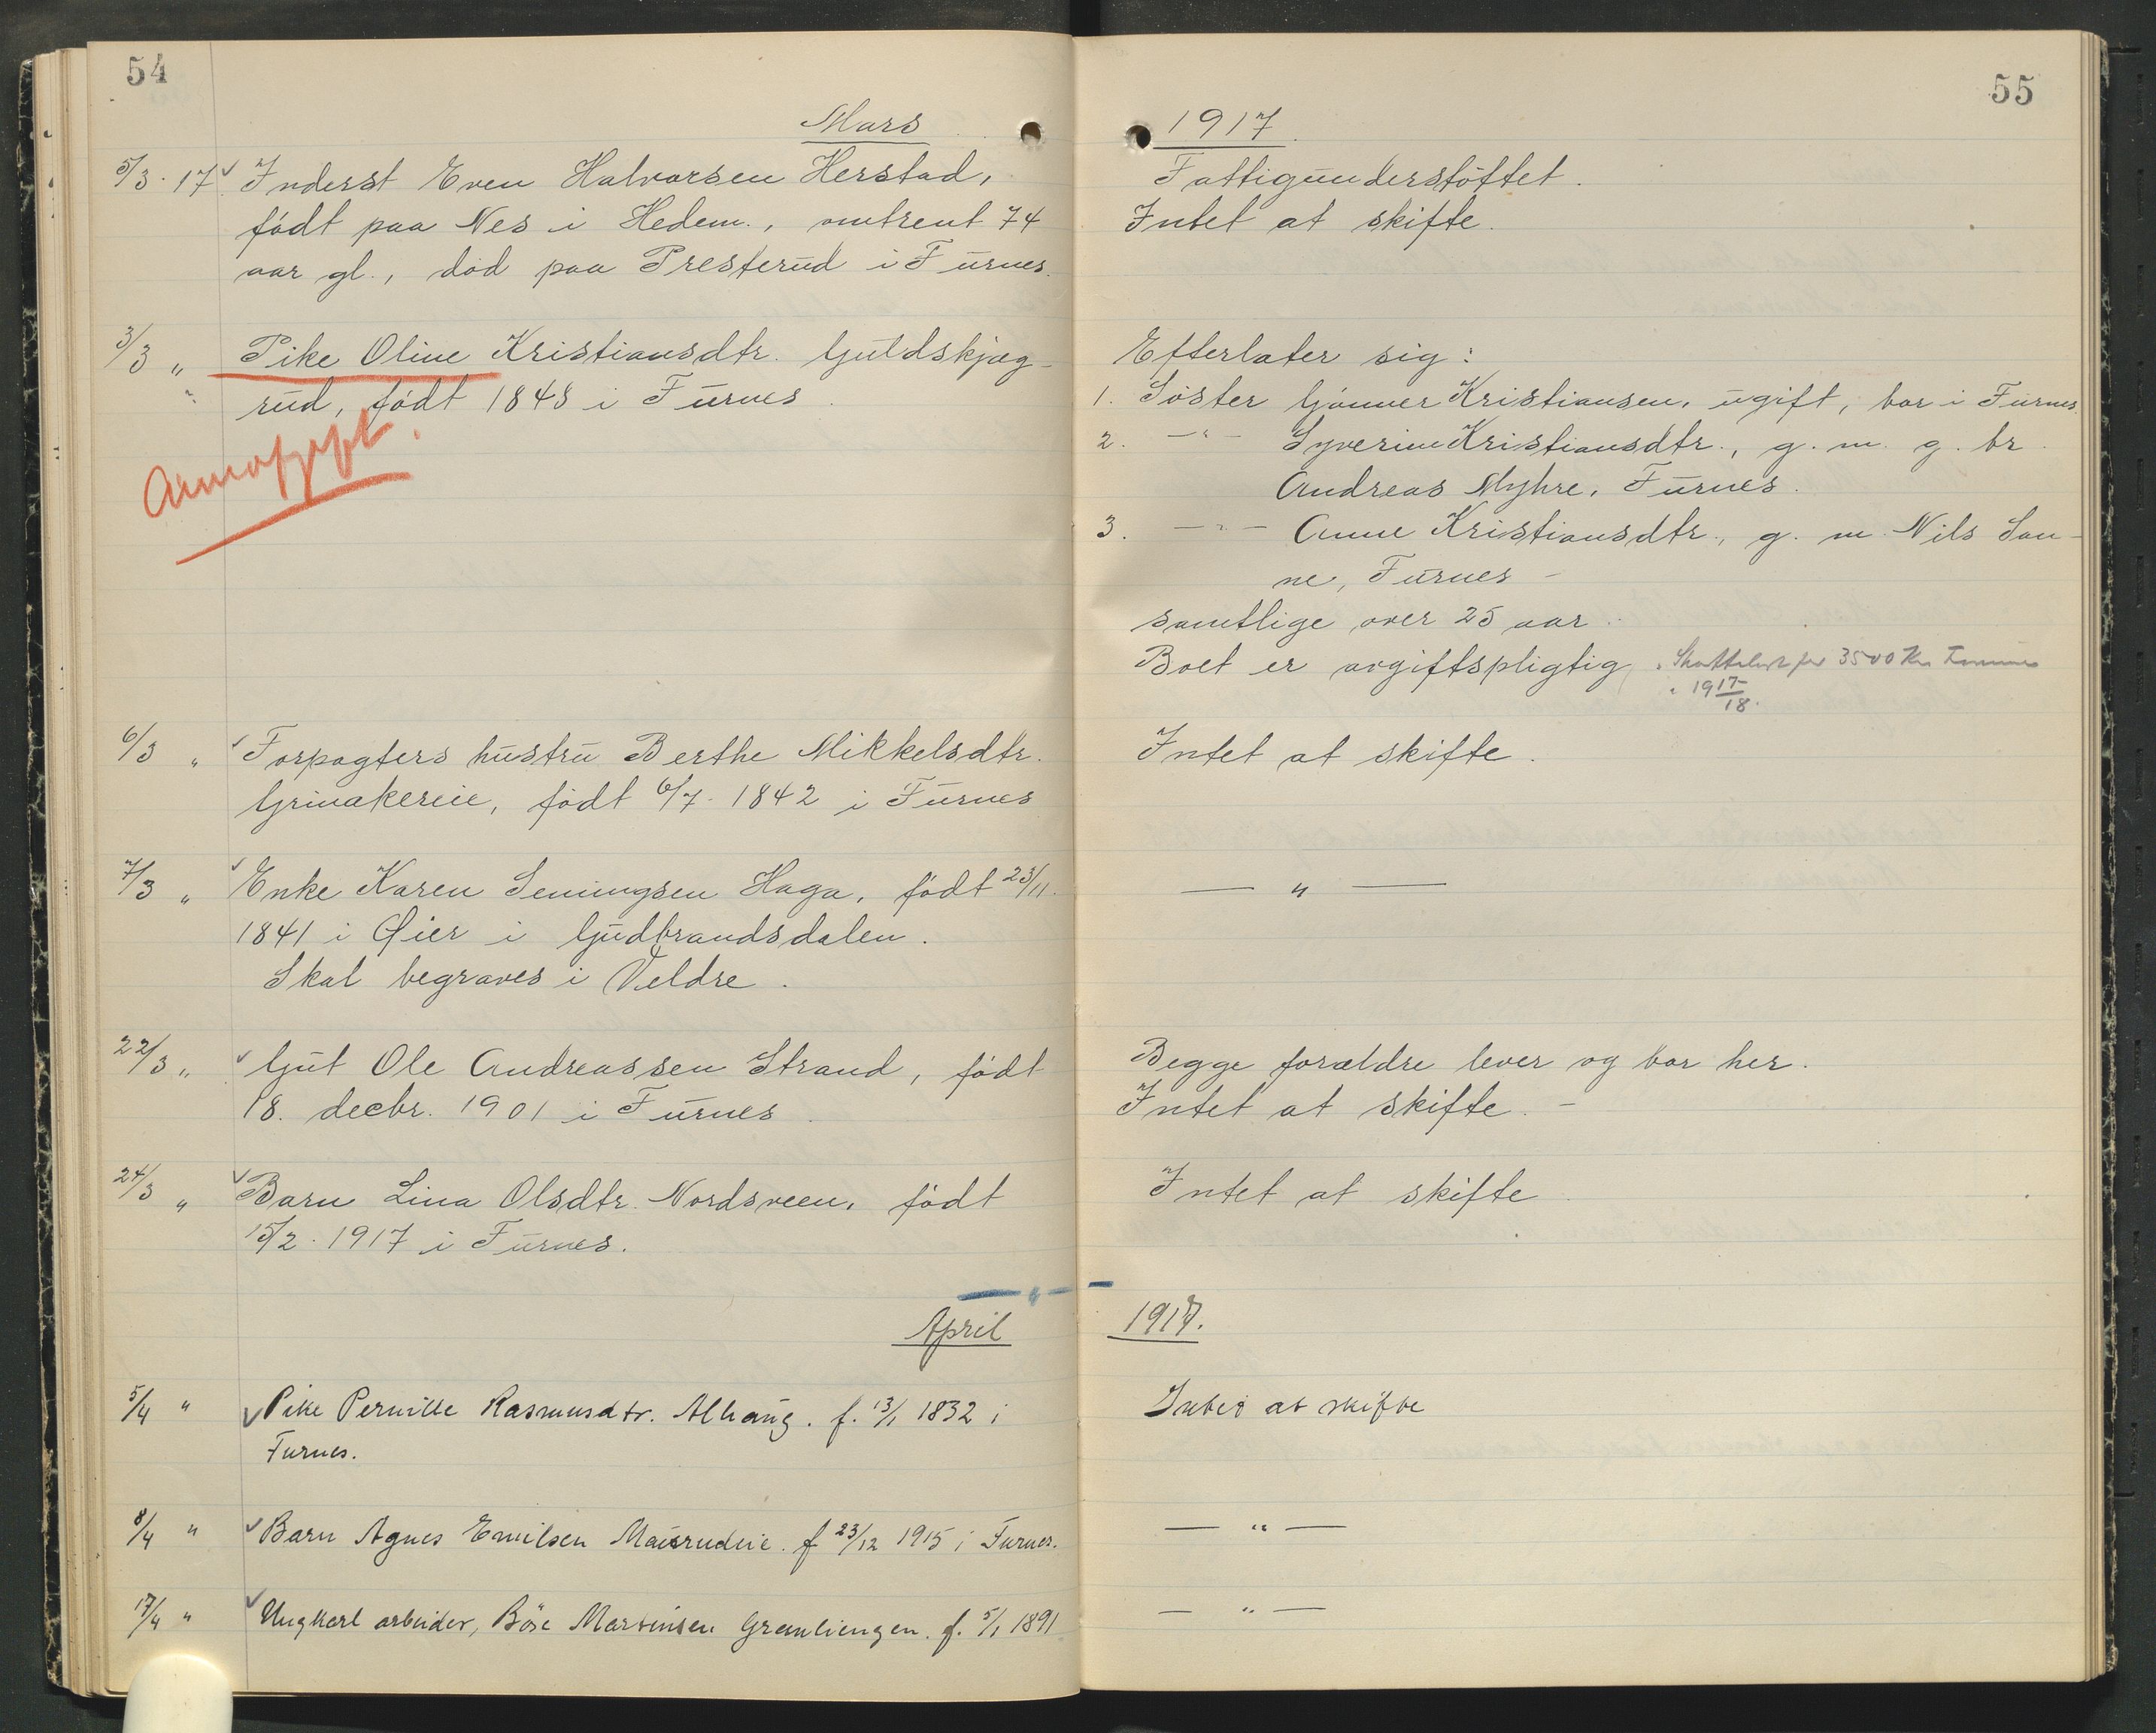 54
Mars
5/3. 17. Inderst Even Halvorsen Herstad,
født paa Nes i Hedem., omtrent 74
aar gl., død paa Presterud i Furnes.
3/3 " Pike Oline Kristiansdtr. Guldskjæg-
rud, født 1848 i Furnes.
6/3 " Forpagters hustru Berthe Mikkelsdtr.
Grinakereie, født 6/7. 1842 i Furnes
7/3 " Enke Karen Semingsen Haga, født 23/11.
1841 i Øier i Gudbrandsdalen.
Skal begraves i Veldre.
22/3 " Gut Ole Andreassen Strand, født
18. decbr. 1901 i Furnes.
24/3 " Barn Lina Olsdtr. Nordsveen, født
15/2. 1917 i Furnes.
— " —
April
5/4 " Pike Pernille Rasmusdtr. Alhaug. f. 13/1 1832 i
Furnes.
8/4 " Barn Agnes Emilsen Maurudeie. f 23/12 1915 i Furnes.
17/4 " Ungkarl arbeider, Martinsen Granliengen. f. 5/1 1891
55
1917.
Fattigunderstøttet.
Intet at skifte.
Efterlater sig:
1. Søster Gunner Kristiansen, ugift, bor i Furnes.
2. —"— Syverine Kristiansdtr., g. m. g. br.
Andreas Myhre, Furnes.
3. —"— Anne Kristiansdtr., g. m. Nils San-
ne, Furnes –
samtlige over 25 aar.
Boet er avgiftspligtig. 3500 Kr
1917/18.
Intet at skifte.
— " —
Begge forældre lever og bor her.
Intet at skifte. –
Intet at skifte.
1917.
Intet at skifte
— " —
— " —